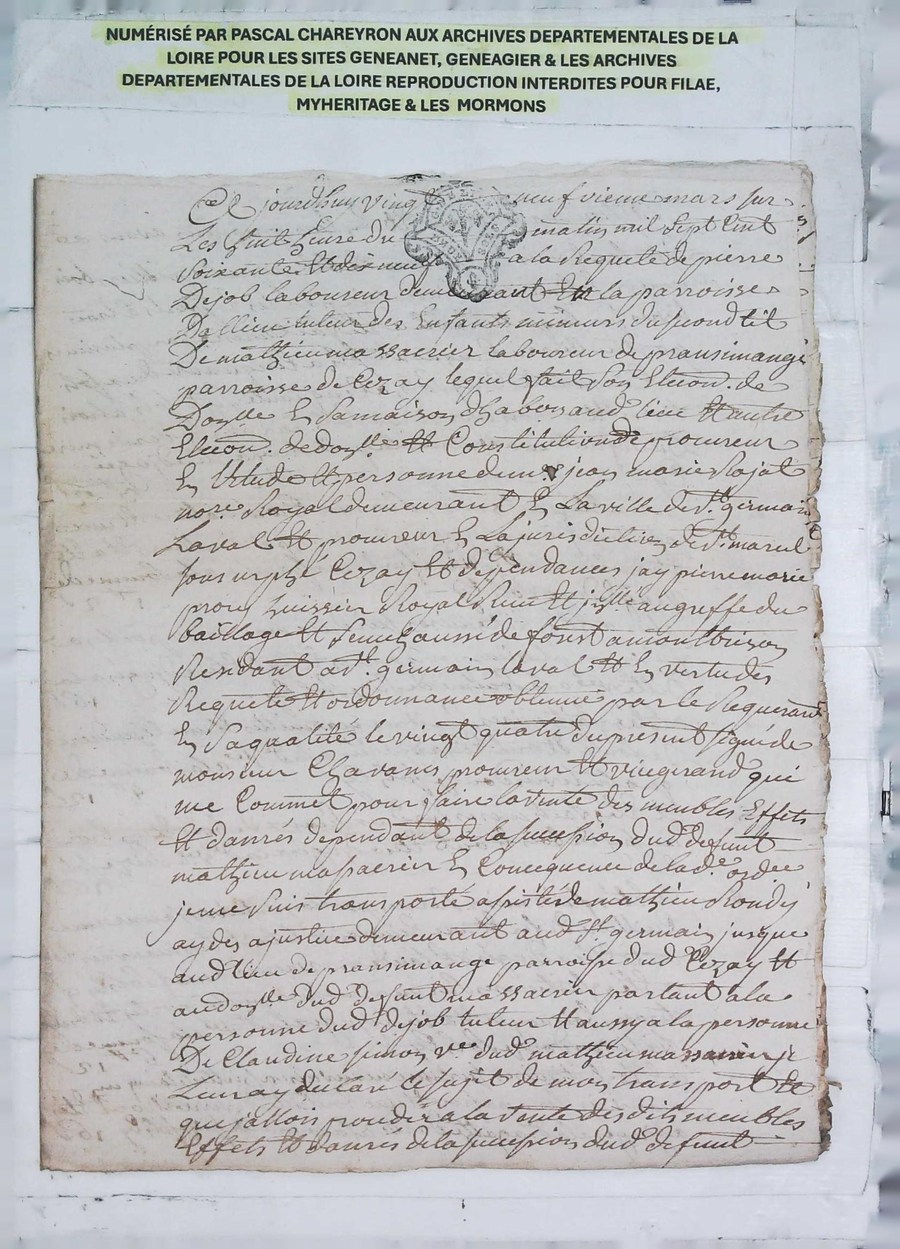 NUMÉRISÉ PAR PASCAL CHAREYRON AUX ARCHIVES DEPARTEMENTALES DE LA
LOIRE POUR LES SITES GENEANET, GENEAGIER & LES ARCHIVES
DEPARTEMENTALES DE LA LOIRE REPRODUCTION INTERDITES POUR FILAE,
MYHERITAGE & LES MORMONS
Ce jourdhuy vingt neufvieme mars sur
Les huit heure du matin mil sept cent
soixante et dix neuf a la Requete de pierre
Dejob laboureur demeurant En la parroisse
Dallieu tuteur des Enfants mineurs du second lit
De mathieu massacrier laboureur de pransimange
parroisse de Cezay lequel fait son Elecon. de
Domlle En sa maison dhabon aud. lieu Et autre
Elecon. de domlle Et Constitution de procureur
En letude Et personne de me jean marie Rojat
nore. Royal demeurant En La ville de st. germain
Laval Et procureur En La jurisdiction de st. marcel
sous urphé Cezay Et dependances jay pierre marie
huissier Royal Receu Et au greffe du
bailliage Et senechaussé de forest a montbrison
Residant a st. germain laval Et En vertu des
Requete Et ordonnance obtenue par le Requerant
En sa qualité le vingt quatre du present signé de
monsieur Chavanes procureur Et qui
me Commet pour faire la vente des meubles Effets
Et danrés dependant de la succession dud. defunt
mathieu massacrier En Concequence de lade. ordce
je me suis transporté assisté de mathieu Rondy
aydes a justice demeurant aud. st. germain jusque
aud. lieu de pransimange parroisse dud. Cezay Et
au domlle dud. defunt massacrier parlant a la
personne dud. dejob tuteur Et aussy a la personne
De Claudine simon ve. dud. mathieu massacrier je
Leur ay declaré le sujet de mon transport Et
que jallois proceder a la vente des dits meubles
Effets Et danres de la succession dud. defunt